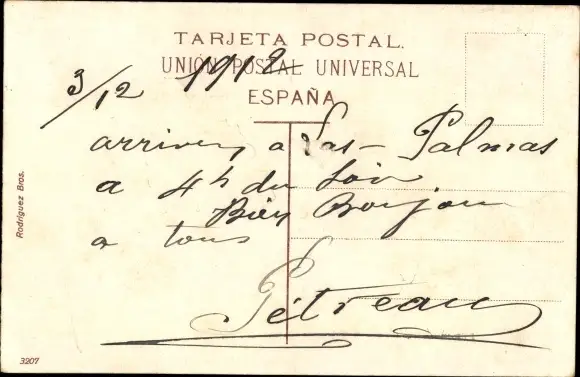 TARJETA POSTAL.
UNIÓN POSTAL UNIVERSAL
ESPAÑA
3/12 1912
arrivez a Las-Palmas
a 4h du Soir
Bien Bonjour
a tous
Pétreau
Rodríguez Bros.
3207